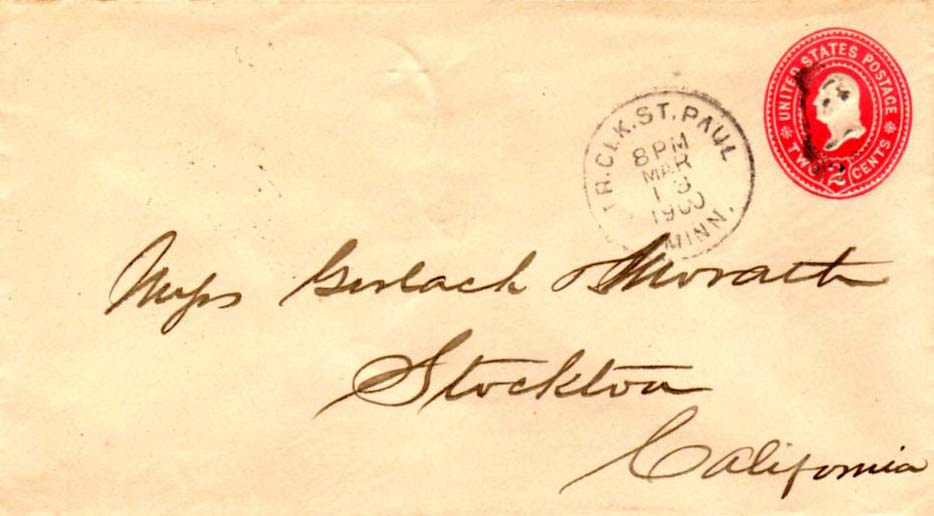 UNITED STATES POSTAGE
TWO 2 CENTS
TR. CLK. ST. PAUL
8 PM
MAR
1900
MINN.
Gerlach & Morath
Stockton
California